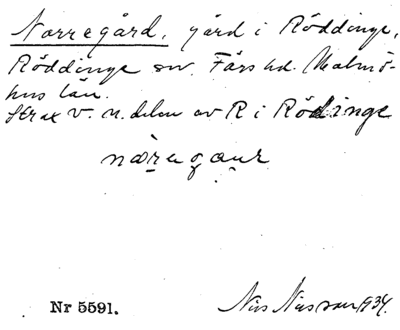 Norregård, gård i Röddinge,
Röddinge sn. Färs hd. Malmö-
hus län.
Strax v. n. delen av R i Rödinge
næregaur
Nr 5591. Nils Nilsson 1934.